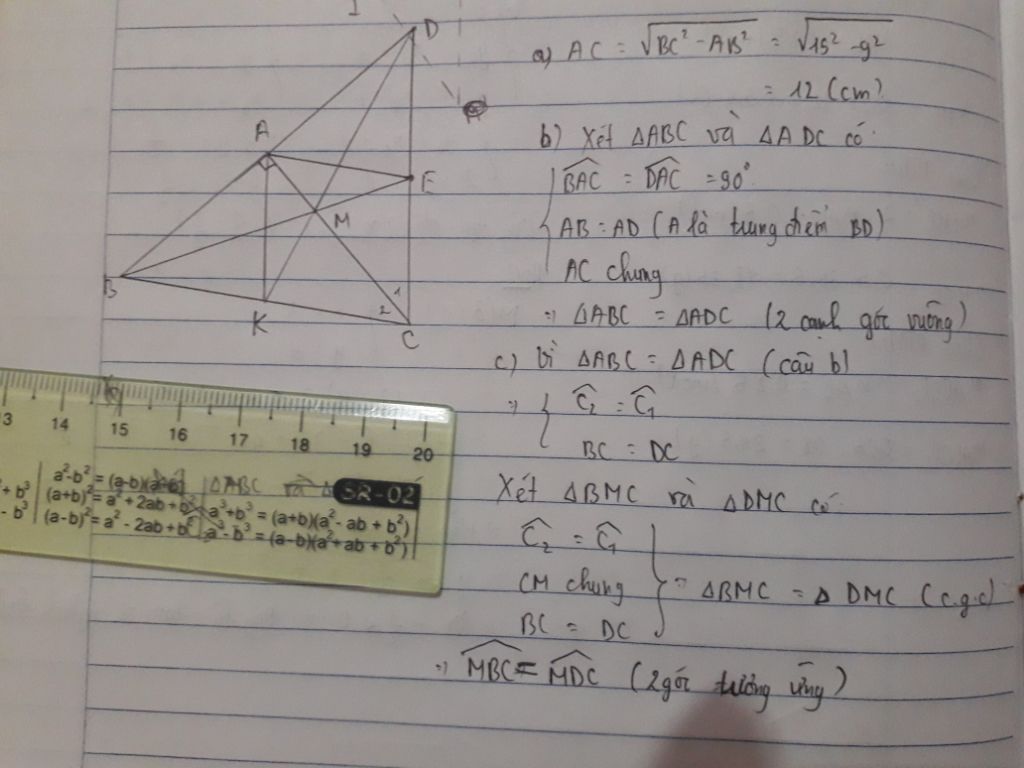 D
A
E
M
B
1
2
K
C
a) AC = √BC² - AB² = √15² - 9²
= 12 (cm)
b) Xét ΔABC và ΔADC có
BAC = DAC = 90°
AB = AD (A là trung điểm BD)
AC chung
=> ΔABC = ΔADC (2 cạnh góc vuông)
c) Vì ΔABC = ΔADC (câu b)
=> { C₂ = C₁
BC = DC
Xét ΔBMC và ΔDMC có
C₂ = C₁
CM chung
BC = DC
} => ΔBMC = Δ DMC (c.g.c)
=> MBC = MDC (2 góc tương ứng)
13 14 15 16 17 18 19 20
a²-b² = (a-b)(a+b)
(a+b)² = a² + 2ab + b²
(a-b)² = a² - 2ab + b²
ΔABC và Δ
SR-02
a³+b³ = (a+b)(a² - ab + b²)
a³-b³ = (a-b)(a² + ab + b²)
+ b³
- b³